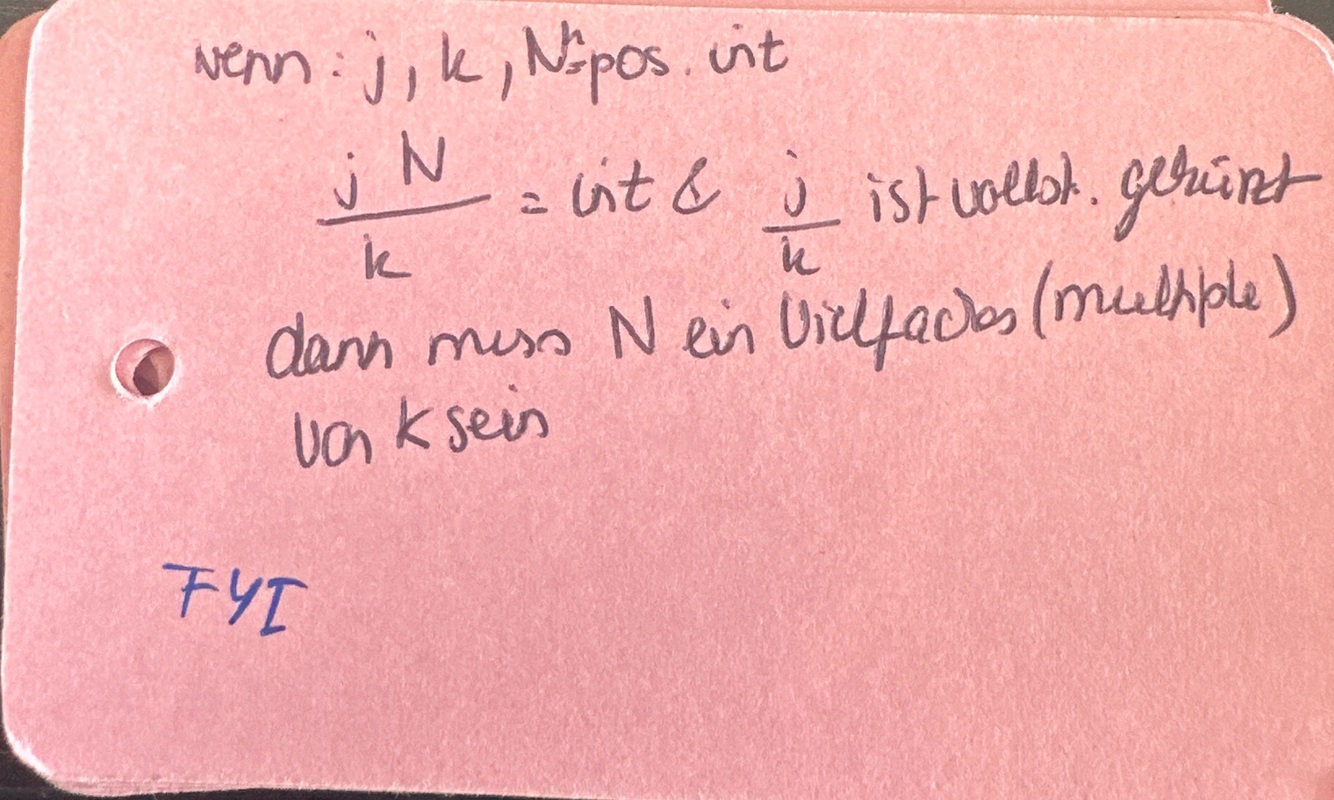 wenn: j, k, N = pos. int
j N / k = int & j / k ist vollst. gekürzt
dann muss N ein Vielfaches (multiple)
von k sein
FYI